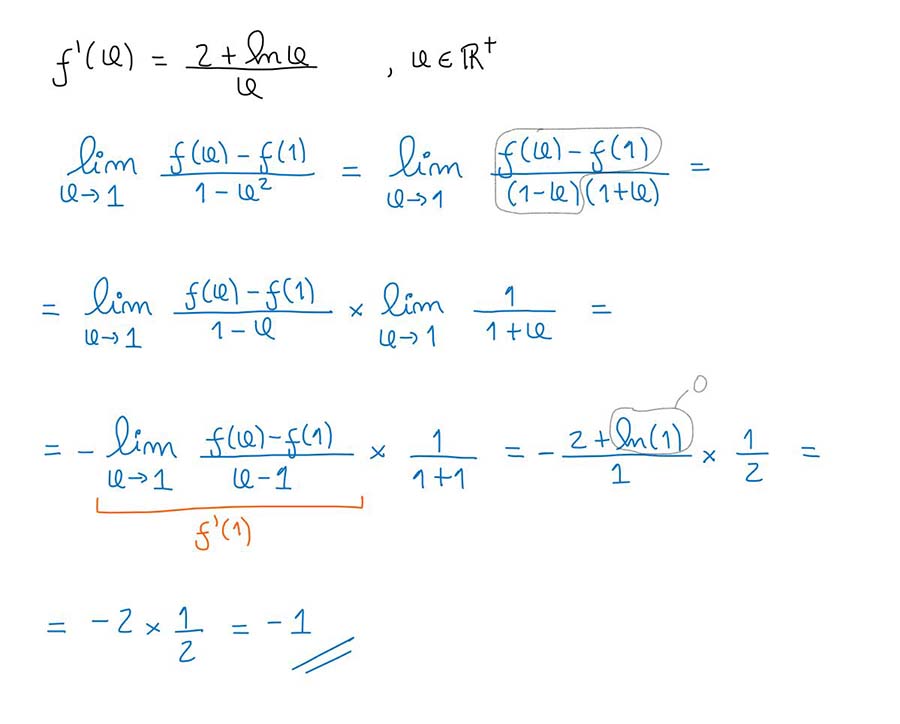 f'(x) = (2 + ln x)/x , x ∈ ℝ⁺
lim_{x→1} (f(x) − f(1))/(1 − x²) = lim_{x→1} (f(x) − f(1))/((1−x)(1+x)) =
= lim_{x→1} (f(x) − f(1))/(1 − x) × lim_{x→1} 1/(1+x) =
0
= − lim_{x→1} (f(x) − f(1))/(x − 1) × 1/(1+1) = − (2 + ln(1))/1 × 1/2 =
f'(1)
= −2 × 1/2 = −1